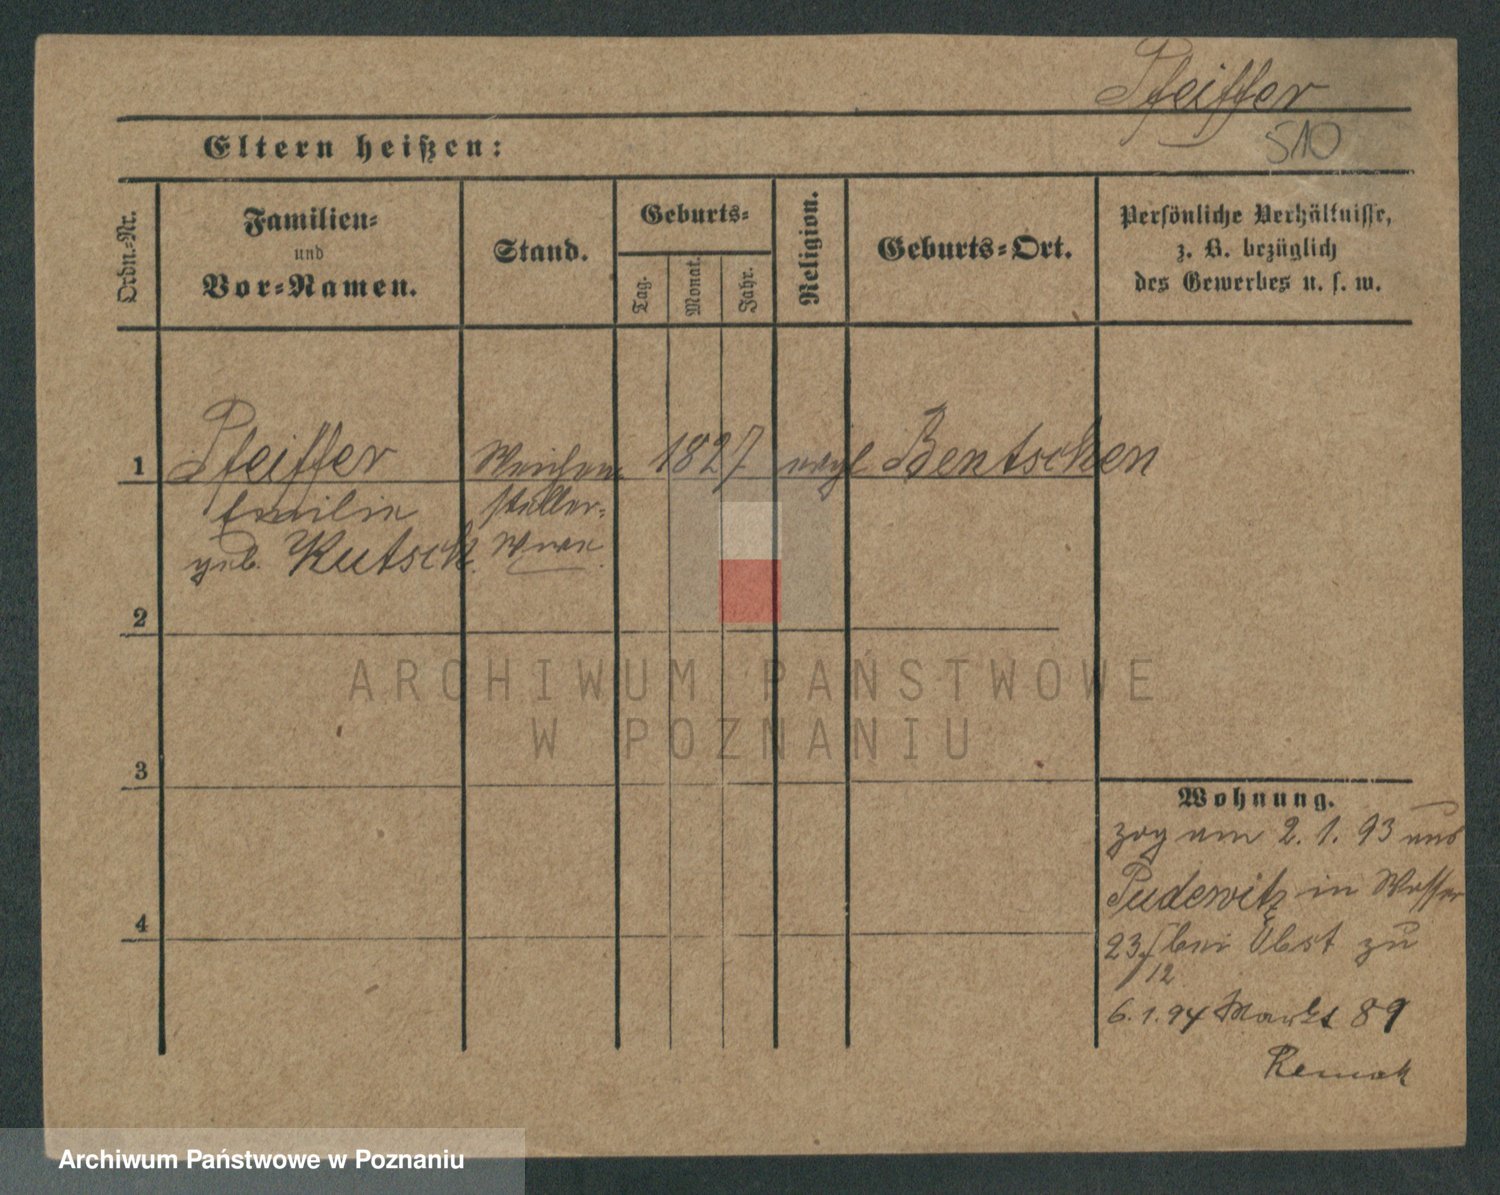 Pfeiffer
510
Eltern heißen:
Ordn.-Nr.
Familien-
und
Vor-Namen.
Stand.
Geburts-
Tag.
Monat.
Jahr.
Religion.
Geburts-Ort.
Persönliche Verhältnisse,
z. B. bezüglich
des Gewerbes u. s. w.
1
Pfeiffer
Emilie
geb. Kutsch.
Weichen
steller-
Wwe.
1827
evgl
Bentschen
2
3
4
Wohnung.
zog am 2. 1. 93 aus
Pudewitz in Wasser
23/12 bei Obst zu
6. 1. 94 Markt 89
Remak
ARCHIWUM PAŃSTWOWE
W POZNANIU
Archiwum Państwowe w Poznaniu